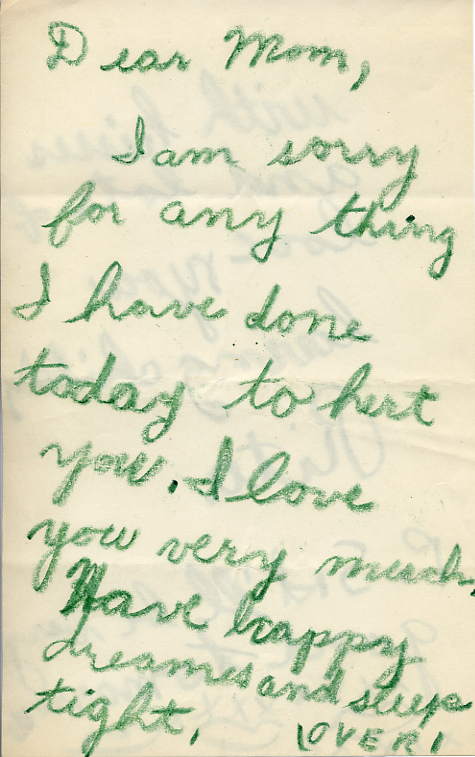 Dear Mom,
I am sorry
for any thing
I have done
today to hert
you. I love
you very much,
Have happy
dreames and sleep
tight,
(OVER)